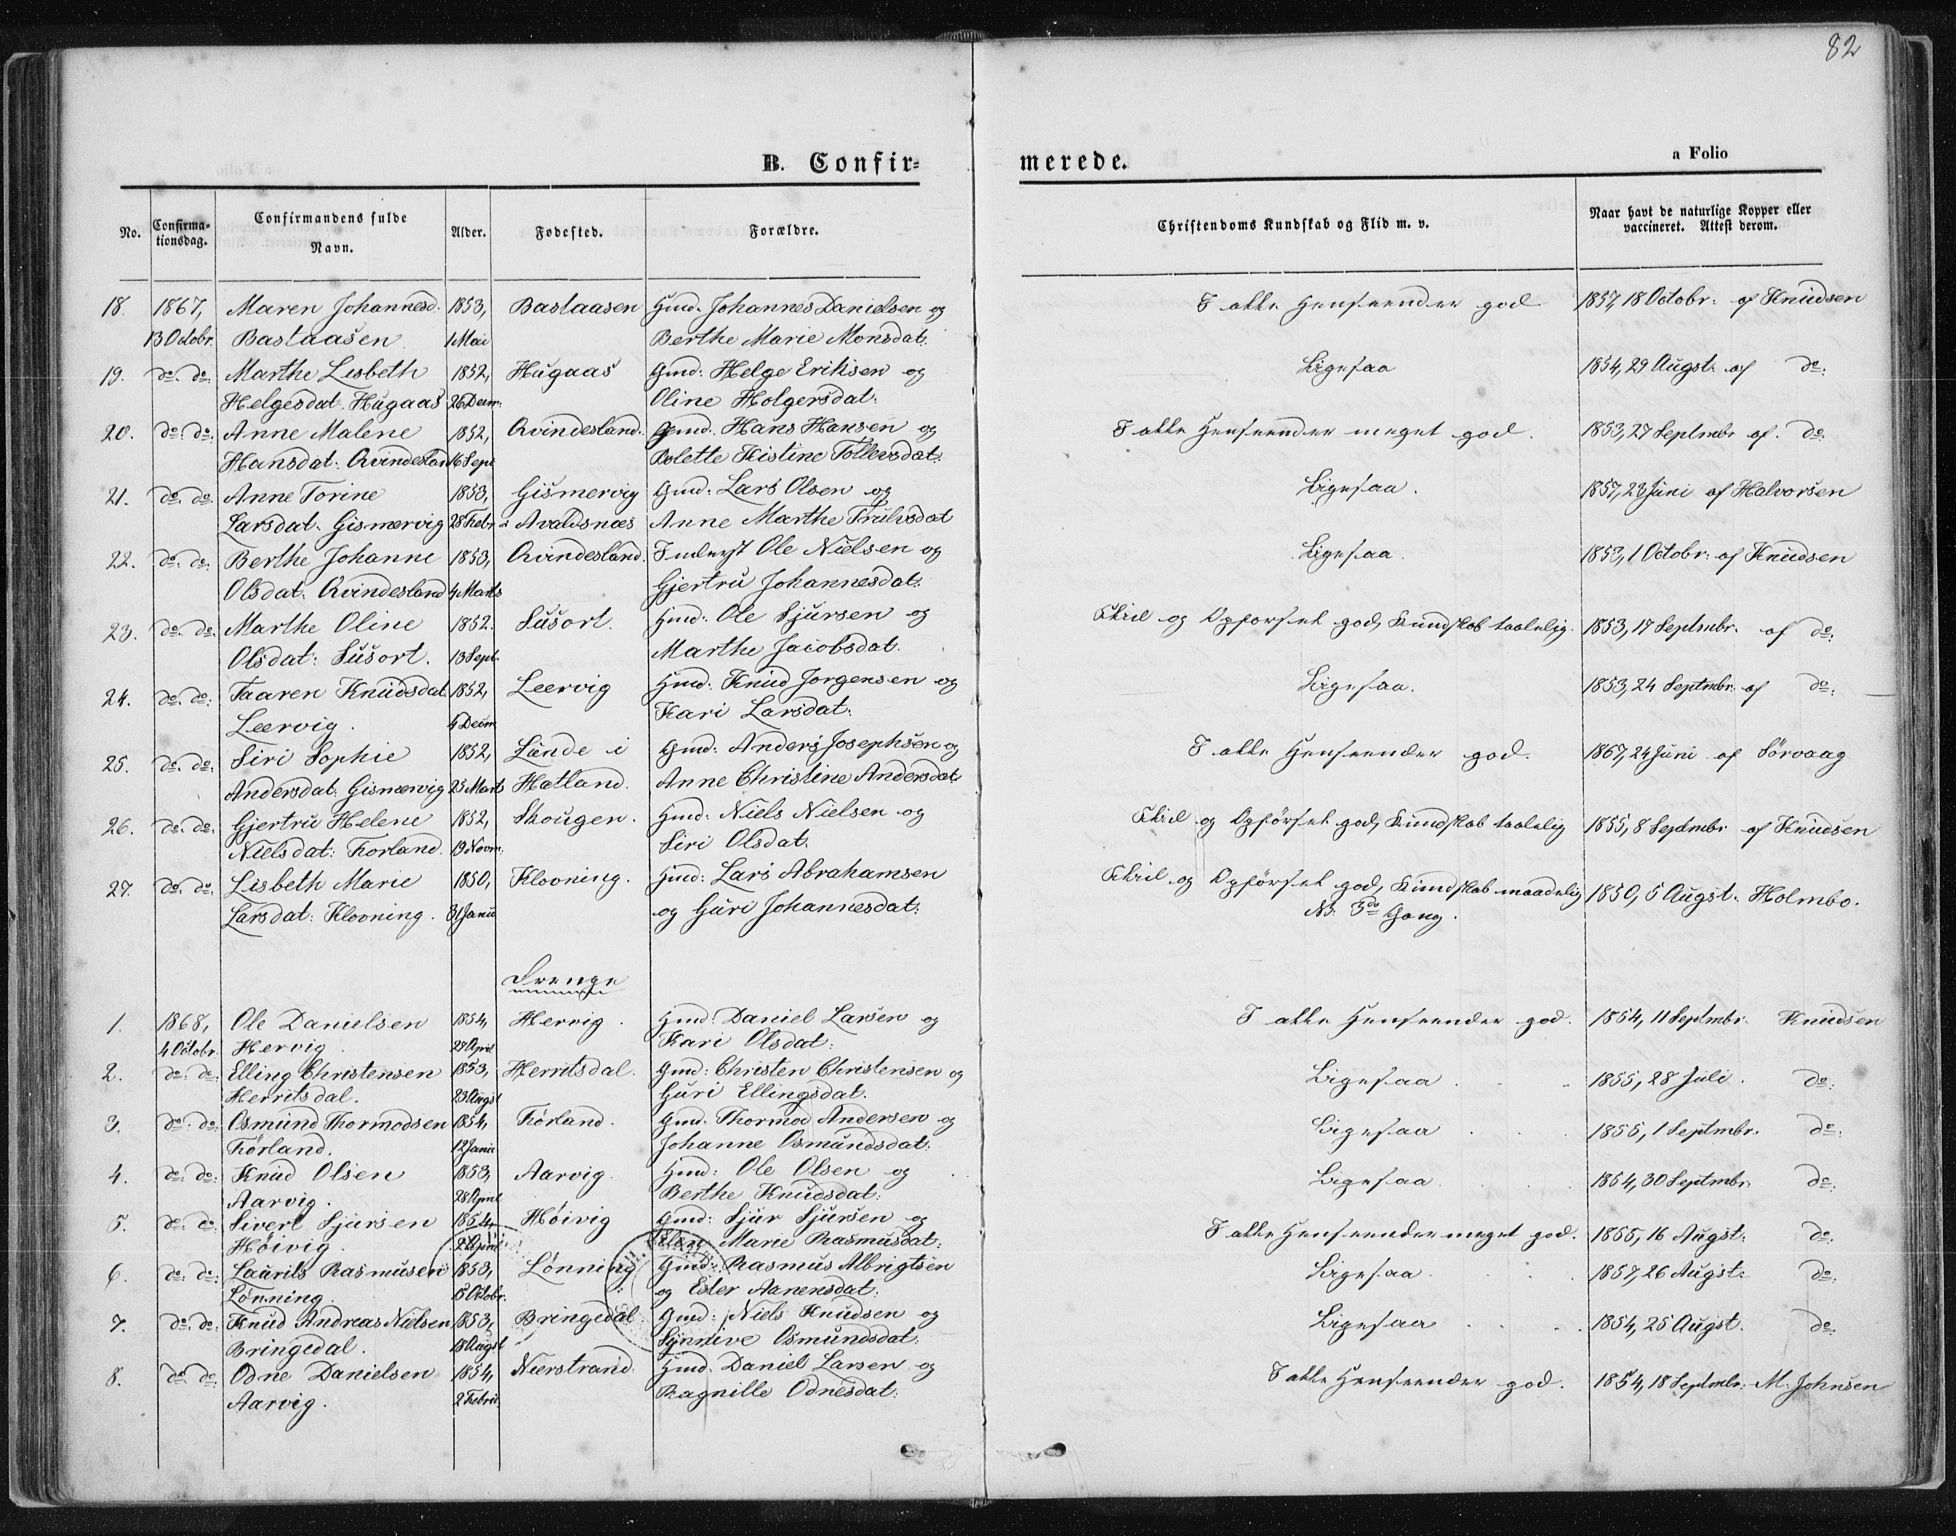 82
B. Confir-
merede.
a Folio
No.
Confirma-
tionsdag.
Confirmandens fulde
Navn.
Alder.
Fødested.
Forældre.
Christendoms Kundskab og Flid m. v.
Naar havt de naturlige Kopper eller
vaccineret. Attest derom.
18. 1867, Maren Johannesd. 1853, Bastaasen Hmd. Johannes Danielsen og I alle Henseender god 1857, 18 Octobr: af Knudsen
13 Octobr. Bastaasen 1 Mai Berthe Marie Monsdat:
19. do. do: Marthe Lisbeth 1852, Hugaas Gmd: Helge Eriksen og Ligesaa 1854, 29 Augst. af do:
Helgesdat. Hugaas 26 Decm: Oline Holgersdat:
20. do. do: Anne Malene 1852, Qvindesland. Gmd. Hans Hansen og I alle Henseender meget god. 1853, 27 Septmbr af. do:
Hansdat: Qvindesland 16 Sept Bolette Kistine Tollevsdat:
21. do. do: Anne Torine 1853, Gismervig Gmd: Lars Olsen og Ligesaa. 1857, 23 Juni af Halvorsen
Larsdat. Gismervig 28 Febr. i Avaldsnæs Anne Marthe Trulsdat
22. do. do: Berthe Johanne 1853, Qvindesland. Inderst Ole Nielsen og Ligesaa. 1853, 1 Octobr: af Knudsen
Olsdat: Qvindesland 4 Marts Gjertru Johannesdat:
23. do. do: Marthe Oline 1852. Susort. Hmd: Ole Sjursen og Flid og Opførsel god, Kundskab taalelig. 1853, 17 Septmbr. af do:
Olsdat: Susort. 13 Sept. Marthe Jacobsdat.
24. do. do: Taaren Knudsdat 1852, Leervig Hmd: Knud Jorgensen og Ligesaa. 1853, 24 Septmbr. af do:
Leervig. 4 Decm Kari Larsdat:
25. do. do: Siri Sophie 1852, Sunde i Gmd: Anders Josephsen og I alle Henseender god. 1867, 24 Juni af Sörvaag
Andersdat: Gismervig 25 Marts Hatland. Anne Christine Andersdat
26. do. do: Gjertru Helene 1852, Skougen. Hmd: Niels Nielsen og Flid og Opførsel god, Kundskab taalelig 1855, 8 Septmbr af Knudsen
Nielsdat: Forland. 19 Novm: Siri Olsdat.
27. do. do: Lisbeth Marie 1850, Klovning. Hmd: Lars Abrahamsen Flid og Opførsel god, Kundskab maadelig 1850, 5 Augst. Holmbo.
Larsdat: Klovning. 31 Janu og Guri Johannesdat: NB. 3de Gang.
Drenge
1. 1868, Ole Danielsen 1854, Hervig. Hmd: Daniel Larsen og I alle Henseender god. 1854, 11 Septmbr. Knudsen
4 Octobr. Hervig 27 April Kari Olsdat:
2. do: do: Elling Christensen 1853, Herritsdal. Gmd: Christen Christensen og Ligesaa 1855, 28 Juli. do:
Herritsdal. 23 Augst Guri Ellingsdat.
3. do: do: Osmund Thormodsen 1854, Förland. Gmd: Thormod Andersen og Ligesaa 1855, 1 Septmbr. do:
Förland. 12 Janu Johanne Osmundsdat:
4. do: do: Knud Olsen 1853, Aarvig. Hmd: Ole Olsen og Ligesaa 1854, 30 Septmbr. do:
Aarvig. 28 April Berthe Knudsdat:
5. do: do: Sivert Sjursen 1854, Höivig Gmd: Sjur Sjursen og I alle Henseender meget god. 1855, 16 Augst: do:
Höivig. 2 April Elen Marie Rasmusdat:
6. do: do: Laurits Rasmusen 1853, Lönning Gmd: Rasmus Albrigtsen Ligesaa. 1857, 26 Augst: do:
Lönning. 15 Octobr. og Ester Aanensdat:
7. do: do: Knud Andreas Nielsen 1853, Bringedal. Gmd: Niels Knudsen og Ligesaa 1854, 25 Augst. do:
Bringedal. 18 Augst Synnive Osmundsdat:
8. do: do: Odne Danielsen 1854, Nierstrand. Hmd: Daniel Larsen og I alle Henseender god. 1854, 18 Septmbr: M. Johnsen
Aarvig. 2 Febru. Ragnille Odnesdat: